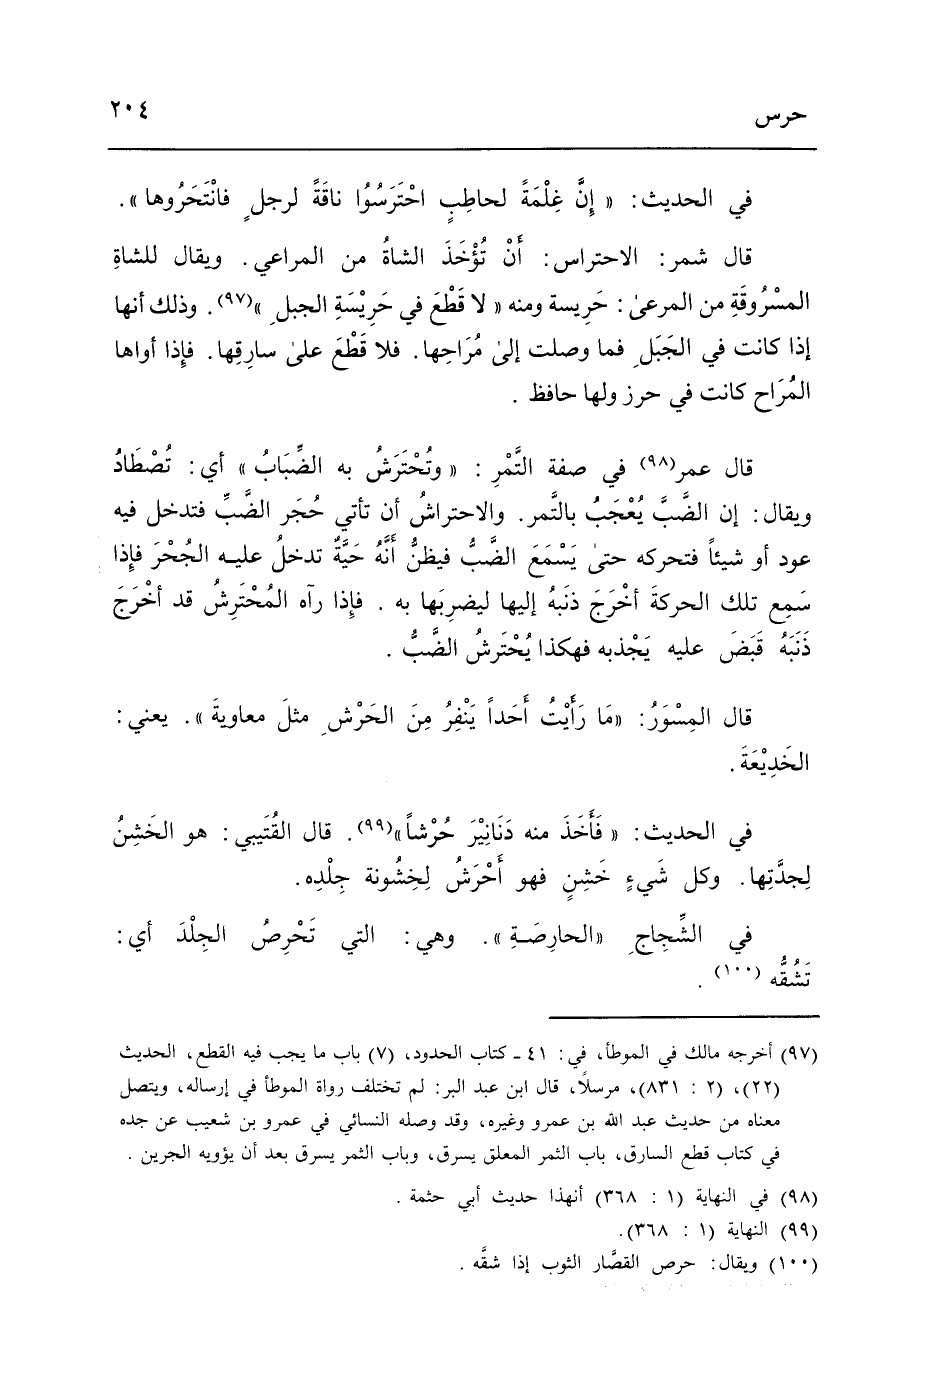 حرس ٢٠٤
في الحديث: « إِنَّ غِلْمَةً لحاطِبٍ احْتَرَسُوُا ناقَةً لرجلٍ فانْتَحَرُوها ».
قال شمر: الاحتراس: أَنْ تُؤْخَذَ الشاةُ من المراعي. ويقال للشاةِ
المسْرُوقَةِ من المرعىٰ: حَرِيسة ومنه « لا قَطْعَ في حَرِيْسَةِ الجبلِ »(٩٧). وذلك أنها
إذا كانت في الجَبَلِ فما وصلت إلىٰ مُرَاحِها. فلا قَطْعَ علىٰ سارِقِها. فإذا أواها
المُرَاح كانت في حرز ولها حافظ .
قال عمر(٩٨) في صفة التَّمْرِ : « وتُحْتَرَشُ به الضِّبَابُ » أي: تُصْطَادُ
ويقال: إن الضَّبَّ يُعْجَبُ بالتَّمر. والاحتراشُ أن تأتي حُجَر الضَّبِّ فتدخل فيه
عود أو شيئاً فتحركه حتىٰ يَسْمَعَ الضَّبُّ فيظنُّ أَنَّهُ حَيَّةٌ تدخلُ عليه الجُحْرَ فإِذا
سَمِع تلك الحركةَ أخْرَجَ ذنَبهُ إليها ليضرِبَها به . فإِذا رآه المُحْتَرِشُ قد أخْرَجَ
ذَنَبَهُ قَبَضَ عليه يَجْذبه فهكذا يُحْتَرشُ الضَّبُّ .
قال المِسْوَرُ: «مَا رَأَيْتُ أَحَداً يَنْفِرُ مِنَ الحَرْشِ مثلَ معاويةَ ». يعني:
الخَدِيْعَةَ .
في الحديث: « فَأَخَذَ منه دَنَانِيْرَ حُرْشاً»(٩٩). قال القُتَيبي: هو الخَشِنُ
لِجدَّتِها. وكل شَيءٍ خَشِنٍ فهو أَحْرَشُ لِخشُونة جِلْدِه.
في الشِّجاجِ «الحارِصَةِ ». وهي: التي تَحْرِصُ الجِلْدَ أي:
تَشُقُّه (١٠٠) .
(٩٧) أخرجه مالك في الموطأ، في: ٤١ ـ كتاب الحدود، (٧) باب ما يجب فيه القطع، الحديث
(٢٢)، (٢ : ٨٣١)، مرسلًا، قال ابن عبد البر: لم تختلف رواة الموطأ في إرساله، ويتصل
معناه من حديث عبد الله بن عمرو وغيره، وقد وصله النسائي في عمرو بن شعيب عن جده
في كتاب قطع السارق، باب الثمر المعلق يسرق، وباب الثمر يسرق بعد أن يؤويه الجرين .
(٩٨) في النهاية (١ : ٣٦٨) أنهذا حديث أبي حثمة .
(٩٩) النهاية (١ : ٣٦٨).
(١٠٠) ويقال: حرص القصَّار الثوب إذا شقَّه .